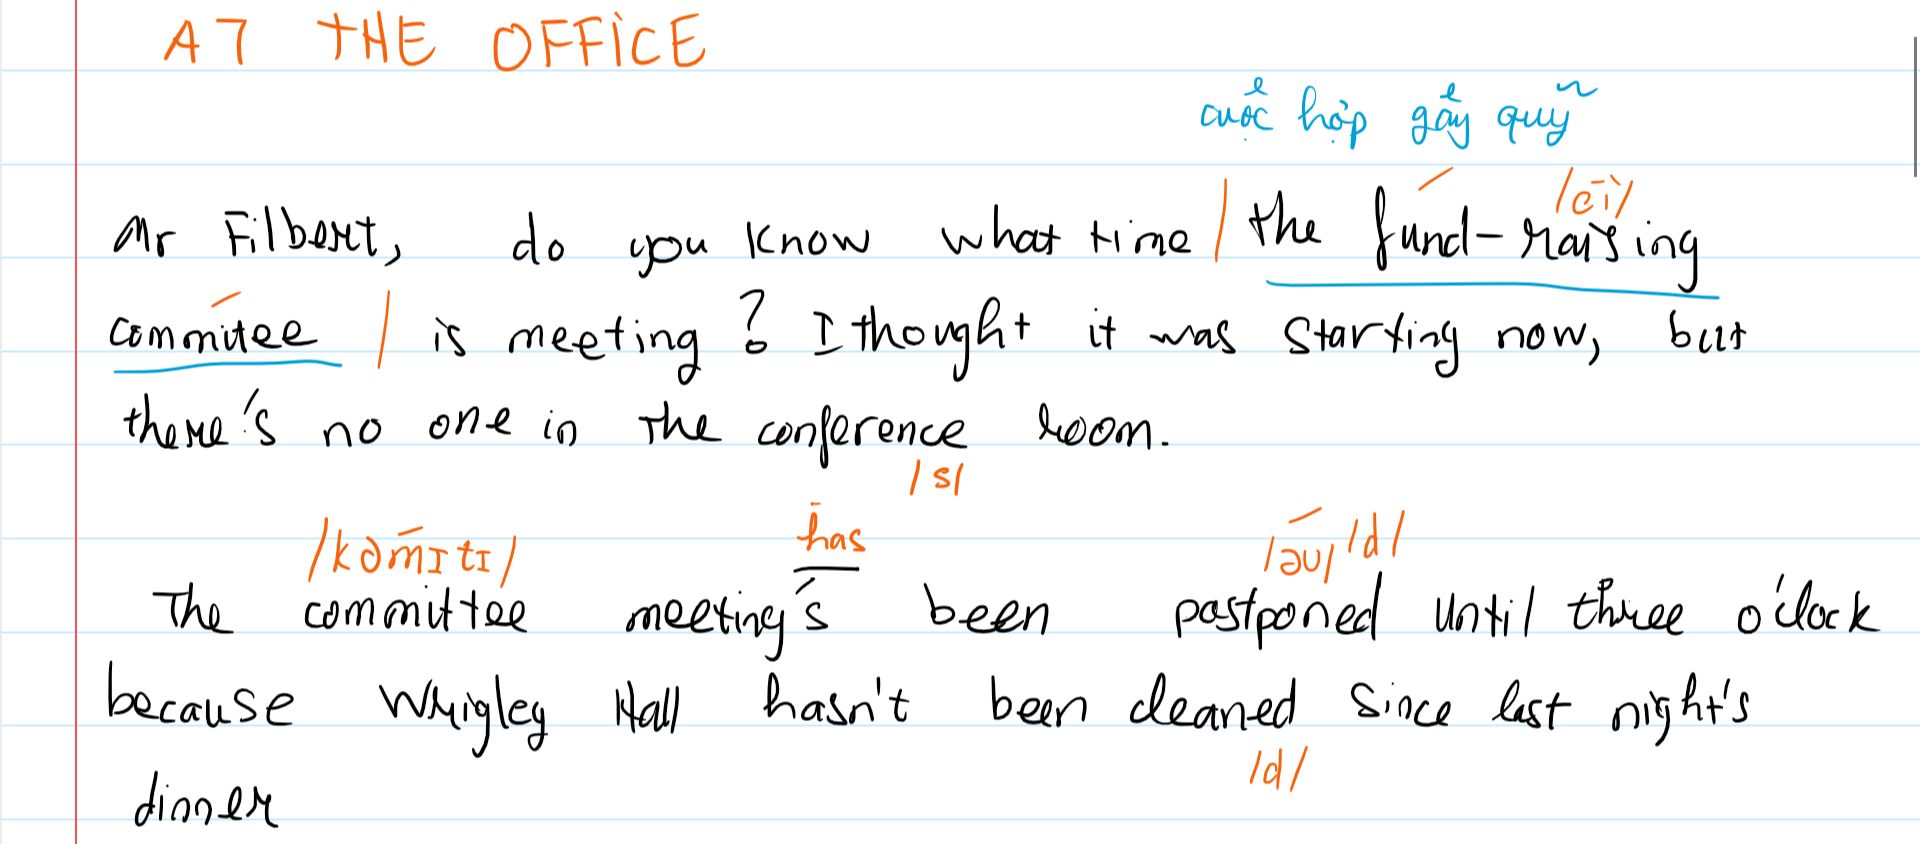 A7 THE OFFICE
cuộc họp gây quỹ
/ei/
Mr Filbert, do you know what time / the fund-raising
commitee / is meeting? I thought it was starting now, but
there's no one in the conference room.
/s/
/kəmɪtɪ/ has /əʊ/ /d/
The committee meeting's been postponed until three o'clock
because Wrigley Hall hasn't been cleaned since last night's
/d/
dinner